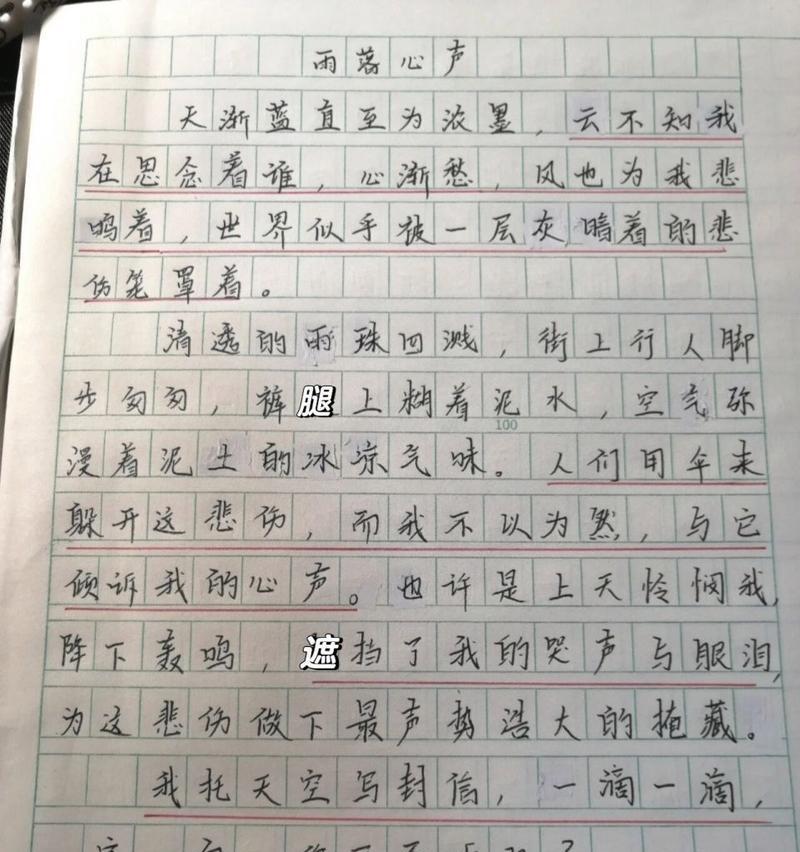 雨落心声
天渐蓝直至为浓墨，云不知我
在思念着谁，心渐愁，风也为我悲
鸣着，世界似乎被一层灰暗着的悲
伤笼罩着。
清透的雨珠四溅，街上行人脚
步匆匆，裤腿上糊着泥水，空气弥
100
漫着泥土的冰凉气味。人们用伞来
躲开这悲伤，而我不以为然，与它
倾诉我的心声。也许是上天怜悯我，
降下轰鸣，遮挡了我的哭声与眼泪，
为这悲伤做下最声势浩大的掩藏。
我托天空写封信，一滴一滴，